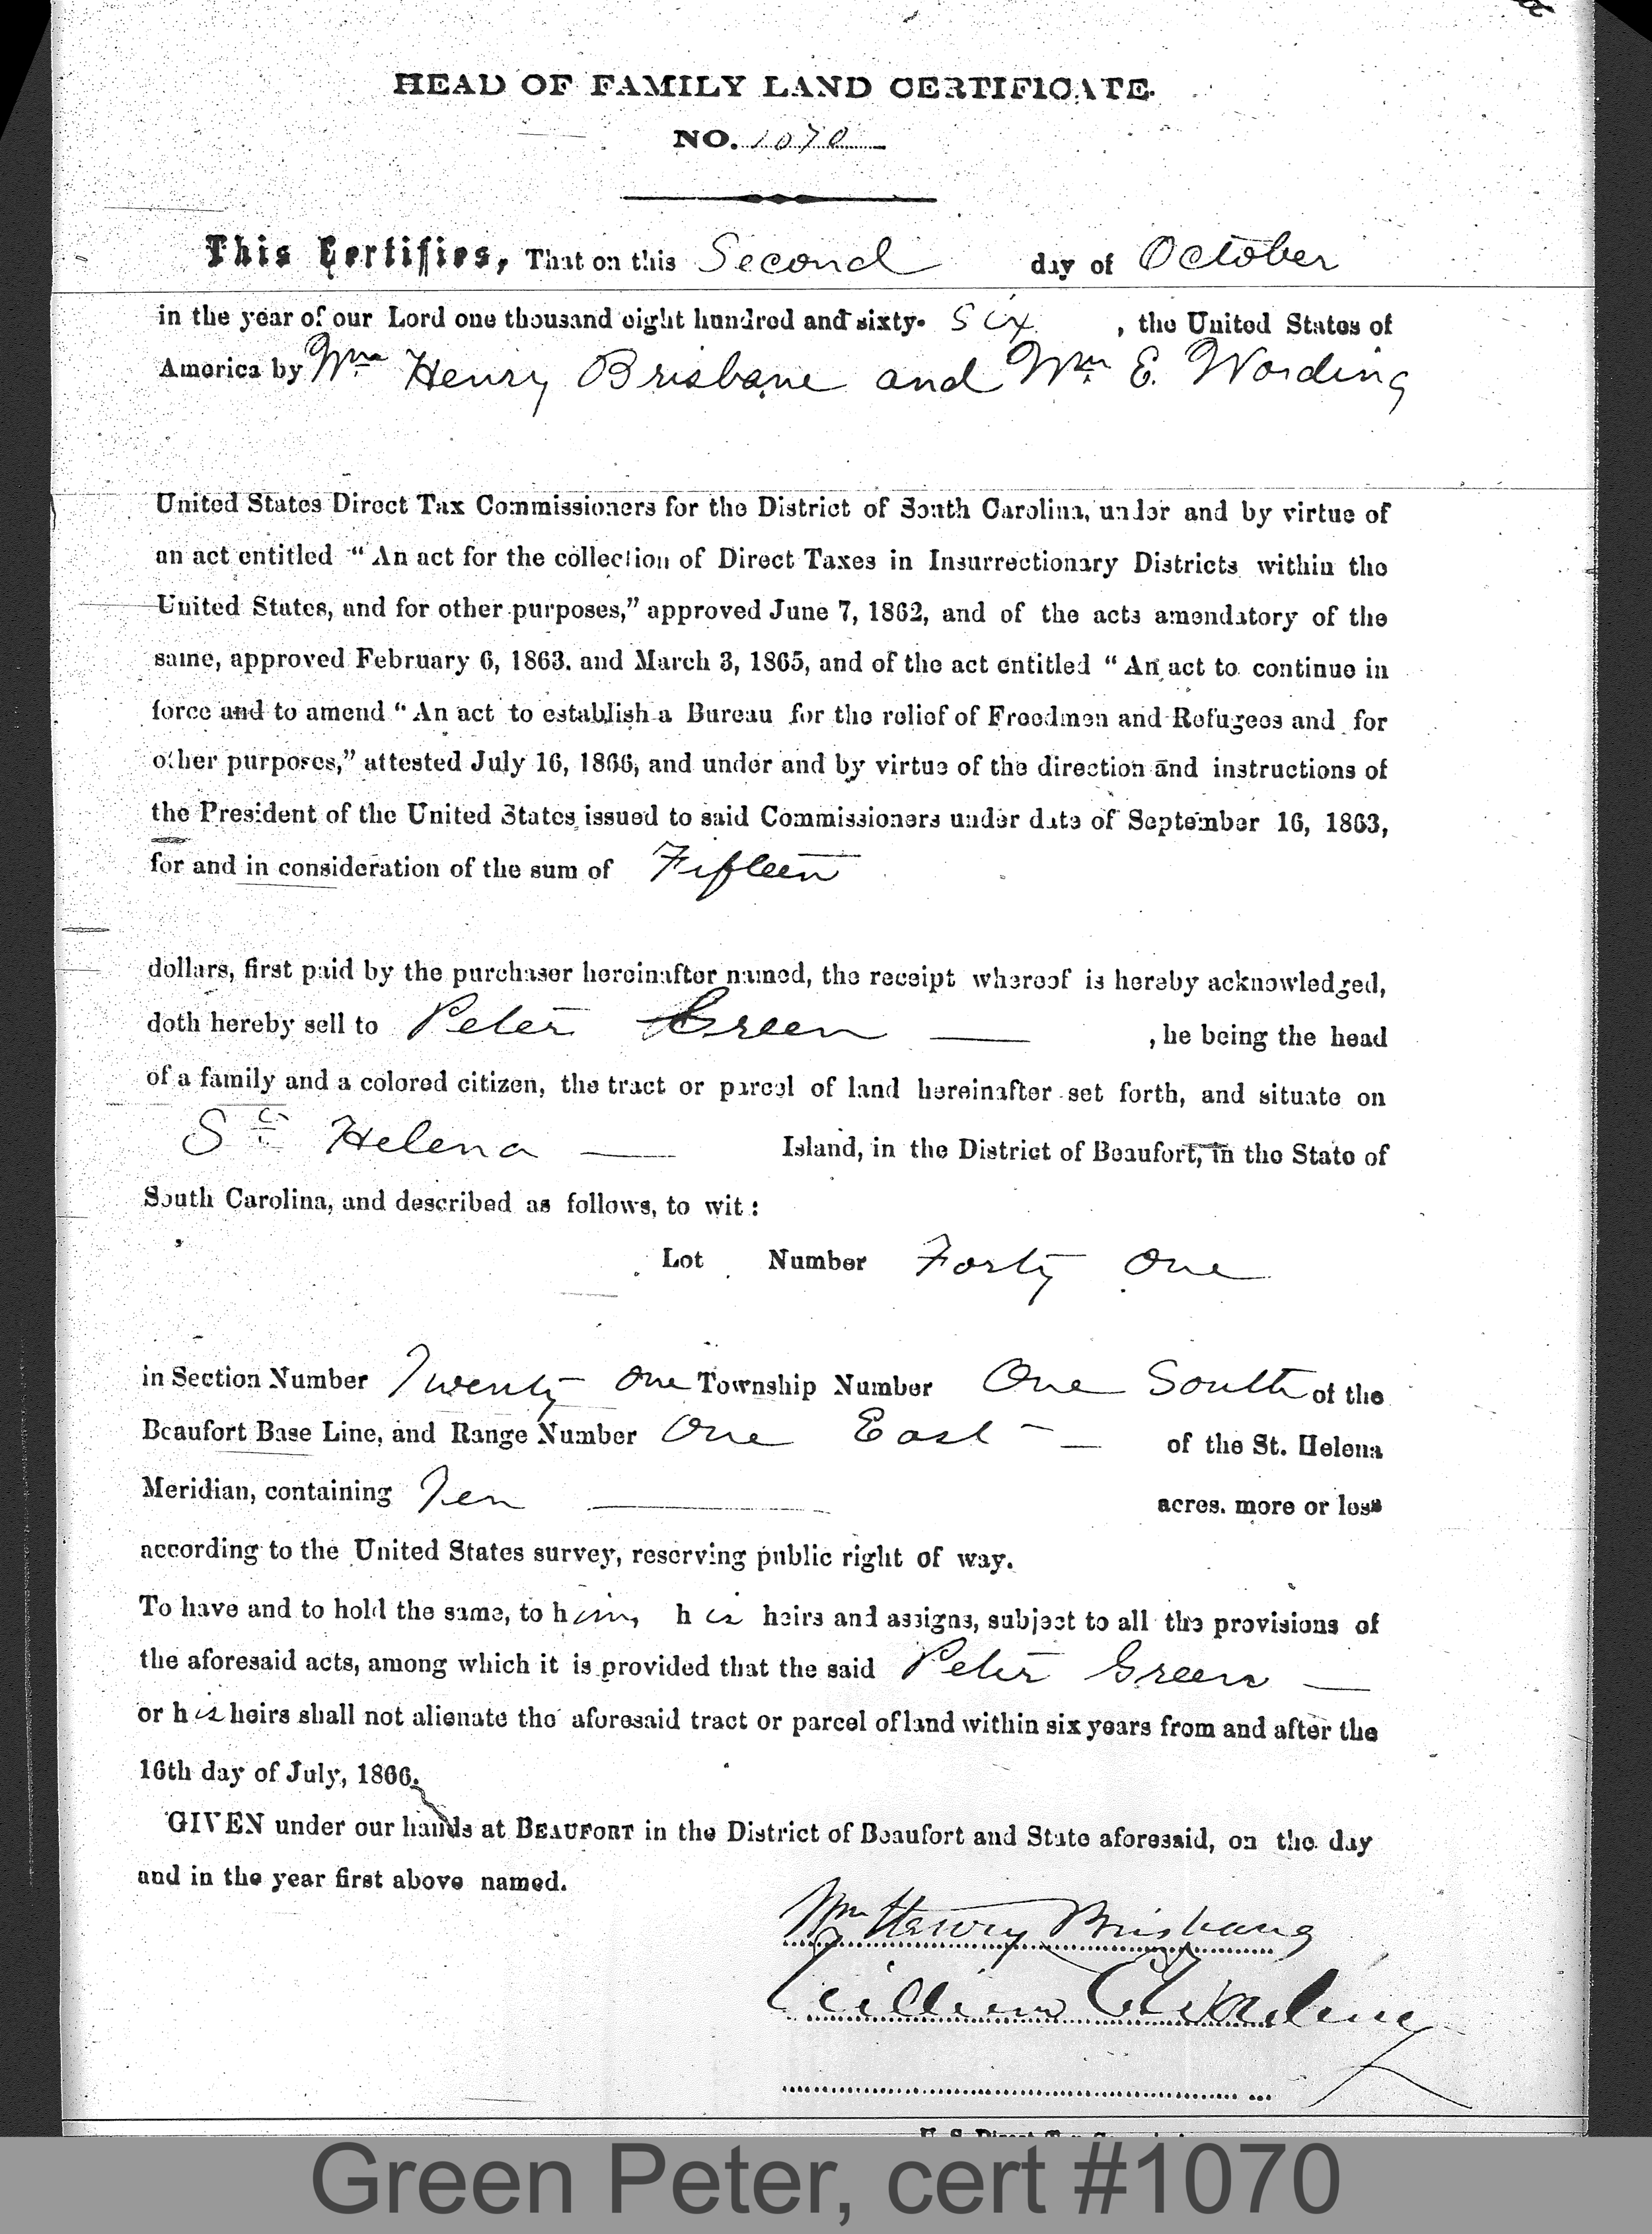 HEAD OF FAMILY LAND CERTIFICATE.
NO. 1070
This Certifies, That on this Second day of October
in the year of our Lord one thousand eight hundred and sixty- Six, the United States of
America by Wm Henry Brisbane and Wm E. Wording
United States Direct Tax Commissioners for the District of South Carolina, under and by virtue of
an act entitled "An act for the collection of Direct Taxes in Insurrectionary Districts within the
United States, and for other purposes," approved June 7, 1862, and of the acts amendatory of the
same, approved February 6, 1863. and March 3, 1865, and of the act entitled "An act to continue in
force and to amend "An act to establish a Bureau for the relief of Freedmen and Refugees and for
other purposes," attested July 16, 1866, and under and by virtue of the direction and instructions of
the President of the United States issued to said Commissioners under date of September 16, 1863,
for and in consideration of the sum of Fifteen
dollars, first paid by the purchaser hereinafter named, the receipt whereof is hereby acknowledged,
doth hereby sell to Peter Green —, he being the head
of a family and a colored citizen, the tract or parcel of land hereinafter set forth, and situate on
St Helena — Island, in the District of Beaufort, in the State of
South Carolina, and described as follows, to wit:
Lot Number Forty One
in Section Number Twenty One Township Number One South of the
Beaufort Base Line, and Range Number One East — of the St. Helena
Meridian, containing Ten — acres. more or less
according to the United States survey, reserving public right of way.
To have and to hold the same, to him, his heirs and assigns, subject to all the provisions of
the aforesaid acts, among which it is provided that the said Peter Green —
or his heirs shall not alienate the aforesaid tract or parcel of land within six years from and after the
16th day of July, 1866.
GIVEN under our hands at BEAUFORT in the District of Beaufort and State aforesaid, on the day
and in the year first above named.
Wm Henry Brisbane
William E. Wording
Green Peter, cert #1070